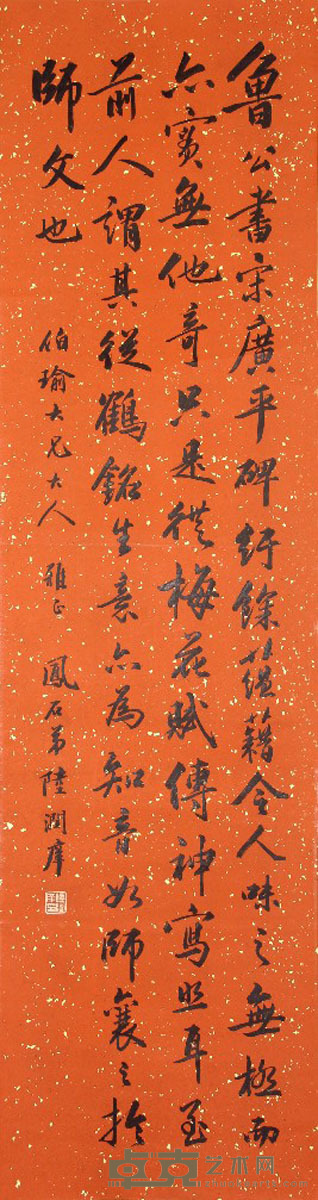 魯公書宋廣平碑紆餘蕴藉令人味之無極而
亦實無他奇只是從梅花賦傳神寫照耳至
前人謂其從鶴銘生意亦為知音如師襄之於
師文也
伯瑜大兄大人 雅正 鳳石弟陸潤庠
卓克艺术网